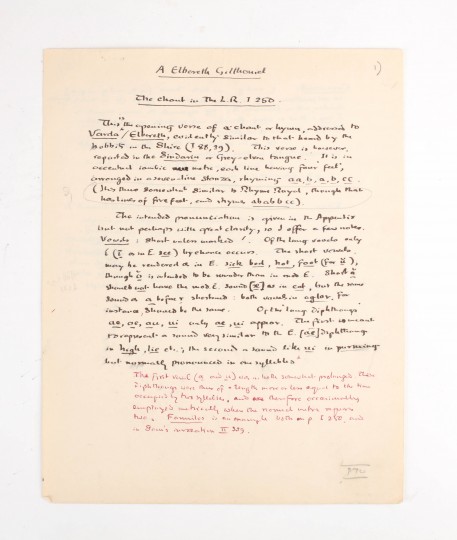 A Elbereth Gilthoniel
1)
The chant in the L.R. I 250.
This is the opening verse of a chant or hymn, addressed to
Varda / Elbereth, evidently similar to that heard by the
hobbits in the Shire (I 88, 89). This verse is however,
reported in the Sindarin or Grey-elven tongue. It is in
accented iambic metre, each line having four feet,
arranged in a seven-line stanza, rhyming a a, b, a, b, c c.
(It is thus somewhat similar to Rhyme Royal, though that
has lines of five feet, and rhyme a b a b b c c).
The intended pronunciation is given in the Appendix
but not perhaps with great clarity, so I offer a few notes.
Vowels: short unless marked ´. Of the long vowels only
í (i as in E. see) by chance occurs. The short vowels
may be rendered as in E. sick bed, hot, foot (for u),
though o is intended to be rounder than in mod E. Short a
should not have the mod E. sound [æ] as in cat, but the same
sound a before r shortened: both vowels in aglar, for
instance, should be the same. Of the 'long diphthongs'
ae, oe, au, ui only ae, ui appear. The first is meant
to represent a sound very similar to the E. [ae] diphthong
in high, lie etc.; the second a sound like ui in pursuing
but normally pronounced in one syllable.
The first vowel (a and u) was in both somewhat prolonged. These
diphthongs were thus of a length more or less equal to the time
occupied by two syllables, and are therefore occasionally
employed metrically when the normal metre requires
two. Fanuilos is an example both on p. I 250. and
in Sam's invocation II 339.